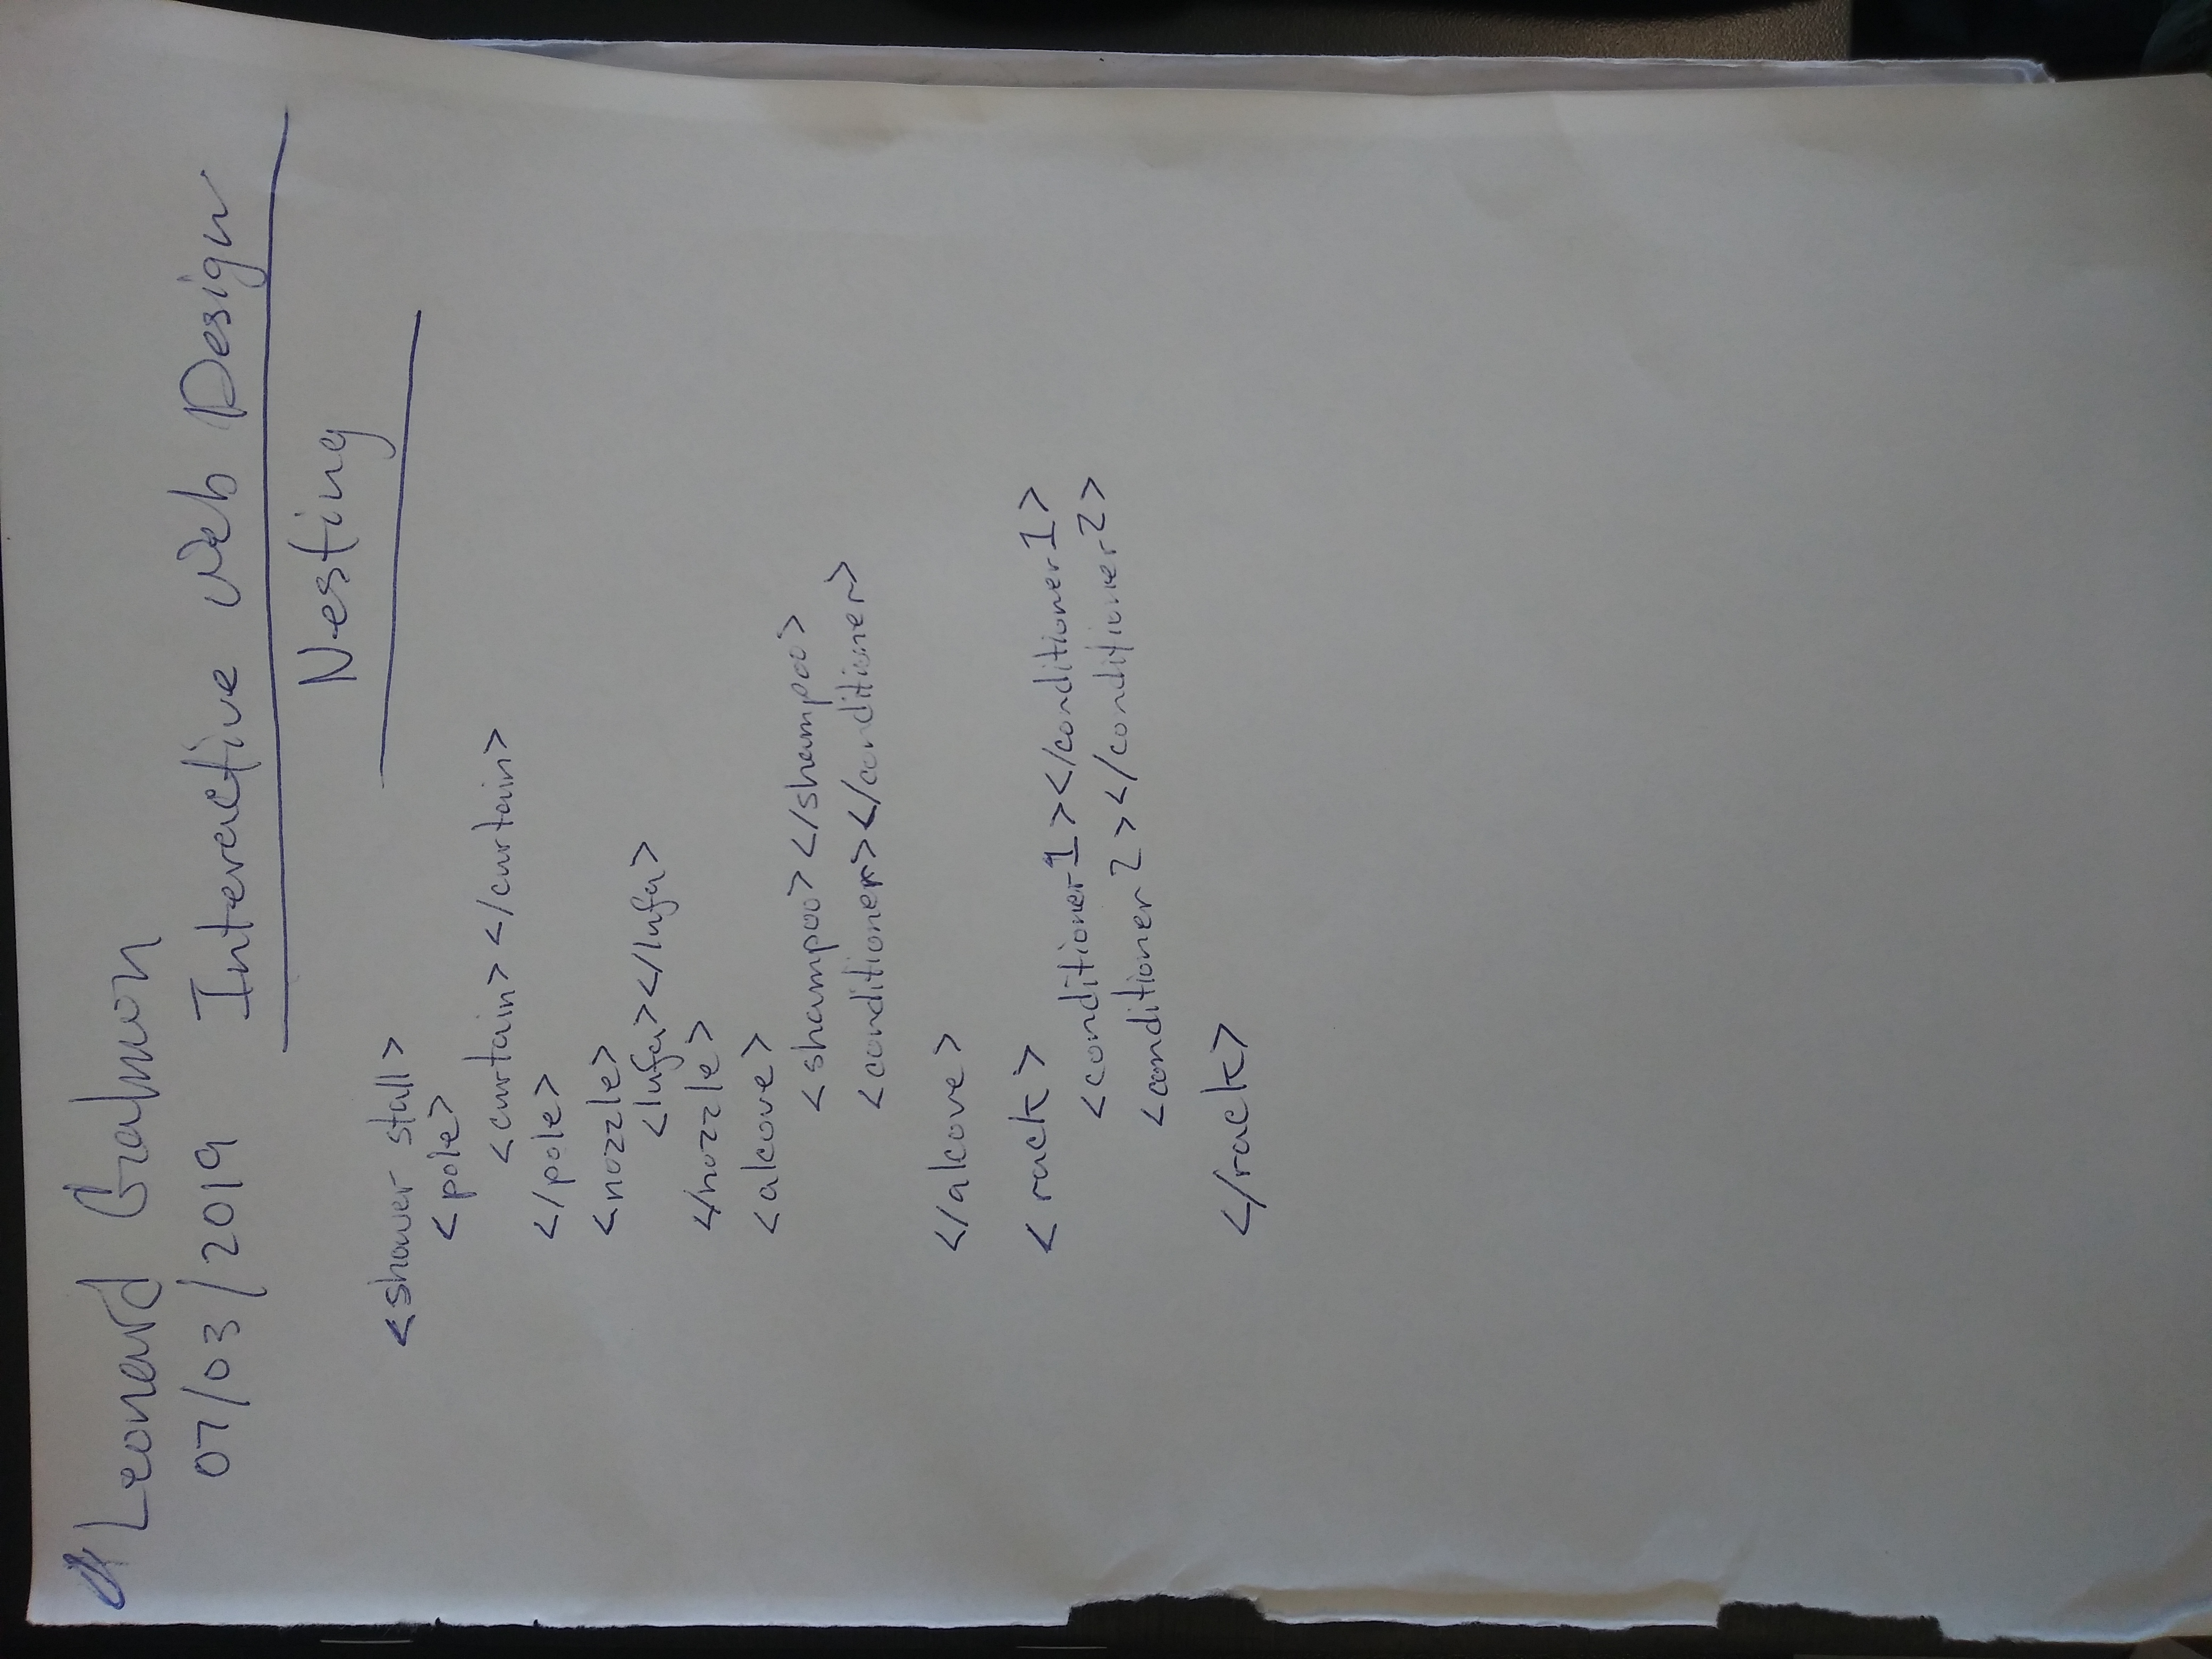 Leonard Gralmon
07/03/2019 Interactive Web Design
Nesting
<shower stall>
<pole>
<curtain></curtain>
</pole>
<nozzle>
<lufa></lufa>
</nozzle>
<alcove>
<shampoo></shampoo>
<conditioner></conditioner>
</alcove>
<rack>
<conditioner1></conditioner1>
<conditioner2></conditioner2>
</rack>